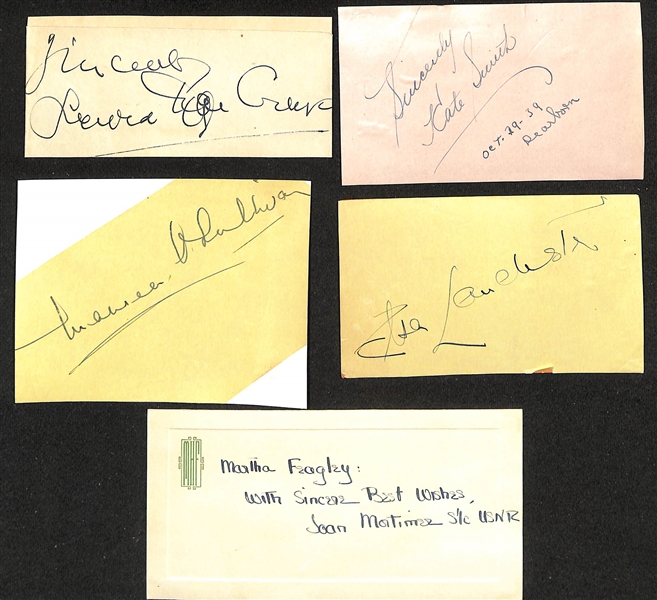 Sincerely
Laura Hope Crews
Sincerely
Kate Smith
OCT. 29-39
Dearborn
Maureen O'Sullivan
Elsa Lanchester
Martha Feagley:
With Sincere Best Wishes,
Joan Mortimer S1/c USNR